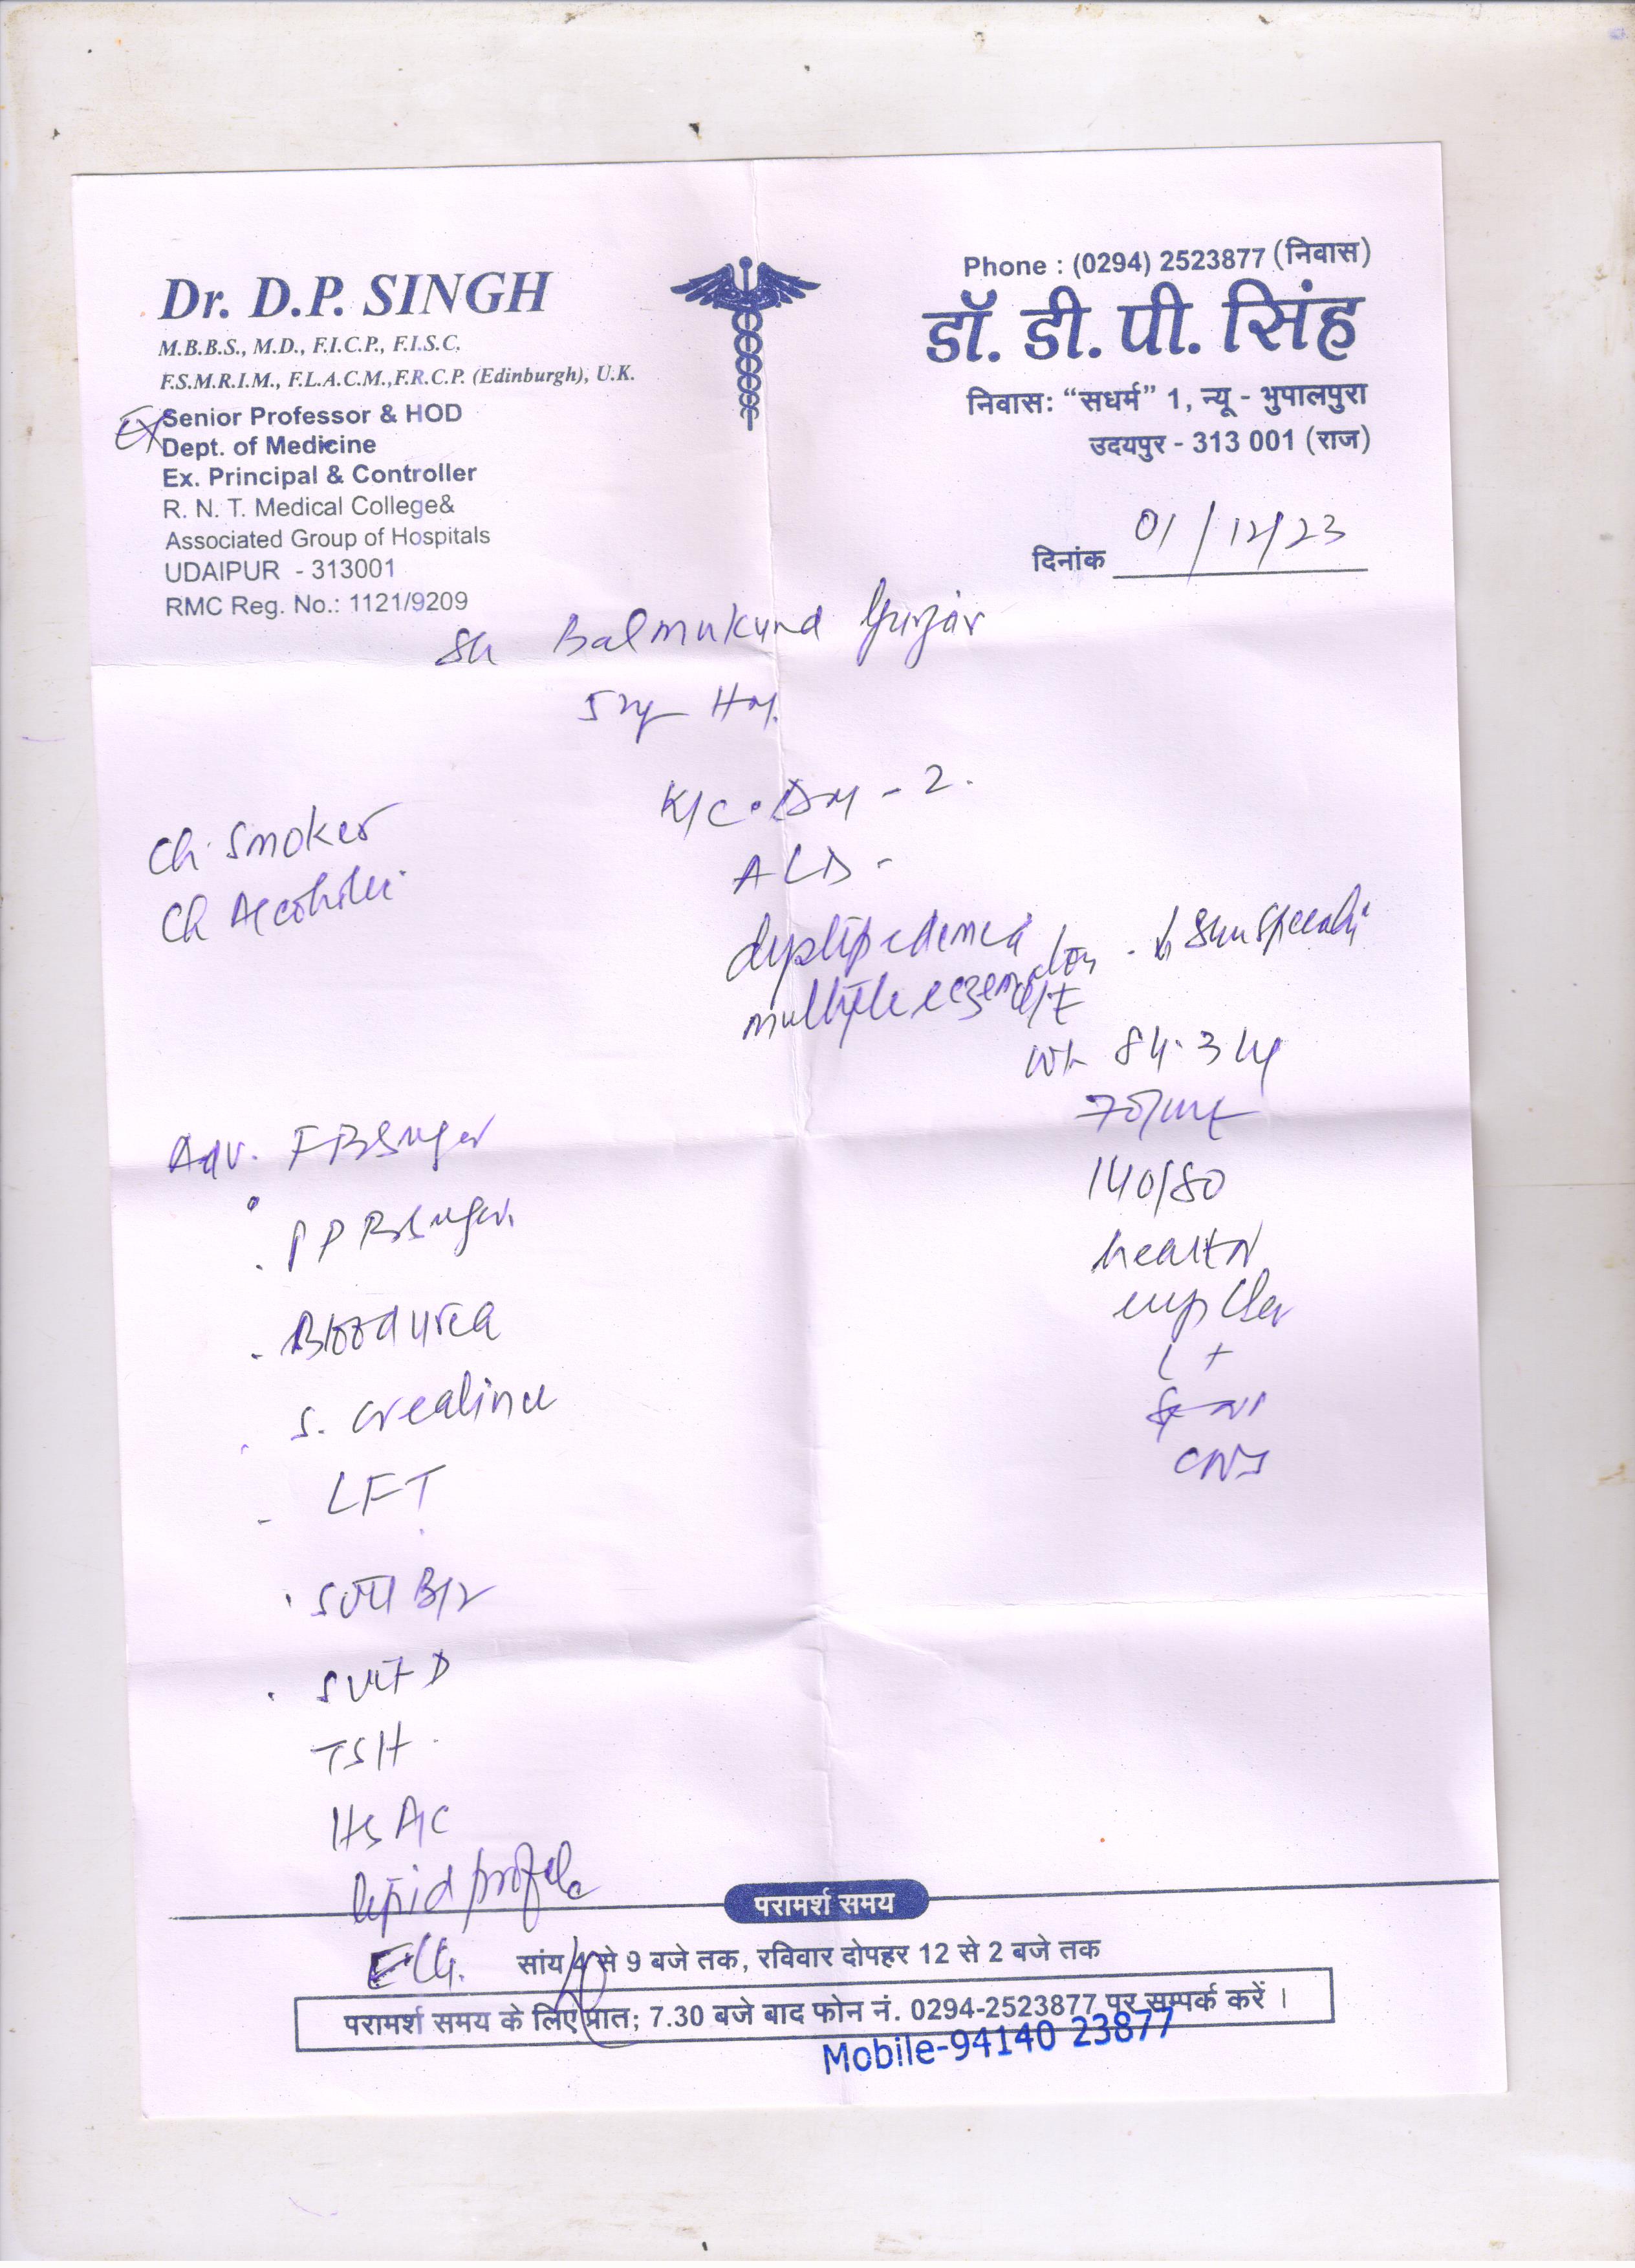 Dr. D.P. SINGH
M.B.B.S., M.D., F.I.C.P., F.I.S.C.
F.S.M.R.I.M., F.L.A.C.M.,F.R.C.P. (Edinburgh), U.K.
Ex Senior Professor & HOD
Dept. of Medicine
Ex. Principal & Controller
R. N. T. Medical College&
Associated Group of Hospitals
UDAIPUR - 313001
RMC Reg. No.: 1121/9209
Phone : (0294) 2523877 (निवास)
डॉ. डी. पी. सिंह
निवास: “सधर्म” 1, न्यू - भुपालपुरा
उदयपुर - 313 001 (राज)
दिनांक 01/12/23
Sh Balmukund Gurjar
Ch. Smoker
Ch Alcoholic
K/C. DM - 2.
ALD -
dyslipedemia
multiple
O/E
Wt 84.3 kg
70/mt
140/80
heart N
L +
CNS
Adv. FBSugar
. PPBSugar.
. Blood urea
. S. creatinine
- LFT
. S Vit B12
. S Vit D
TSH
HbA1C
lipid profile
ECG.
परामर्श समय
सांय 4 से 9 बजे तक, रविवार दोपहर 12 से 2 बजे तक
परामर्श समय के लिए प्रात; 7.30 बजे बाद फोन नं. 0294-2523877 पर सम्पर्क करें ।
Mobile-94140 23877